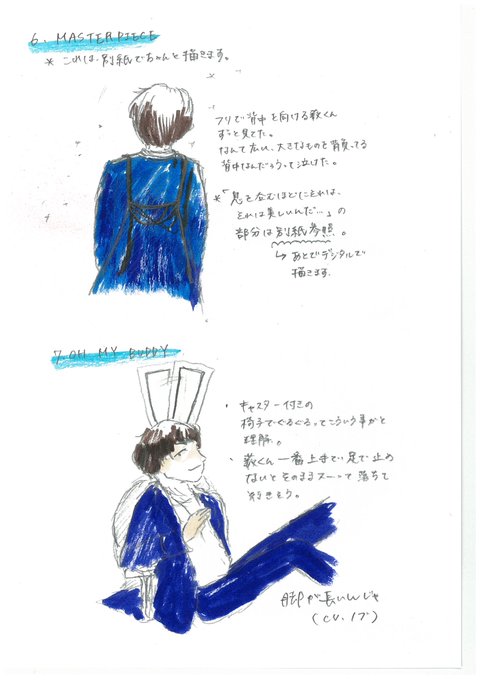 6. MASTERPIECE
* これは、別紙でちゃんと描きます。
フリで背中を向ける萩くん
ずっと見てた。
なんて広い、大きなものを背負ってる
背中なんだろうって泣けた。
*「息を呑むほどにそれは、
それは美しいんだ…」の
部分は別紙参照。
↳ あとでデジタルで
描きます。
7. OH MY BUDDY
・キャスター付きの
椅子でぐるぐるってこういう事かと
理解。
・萩くん一番上まで、足で止め
ないとそのままスーって落ちて
行きそう。
脚が長いんじゃ
(CV.ノブ)